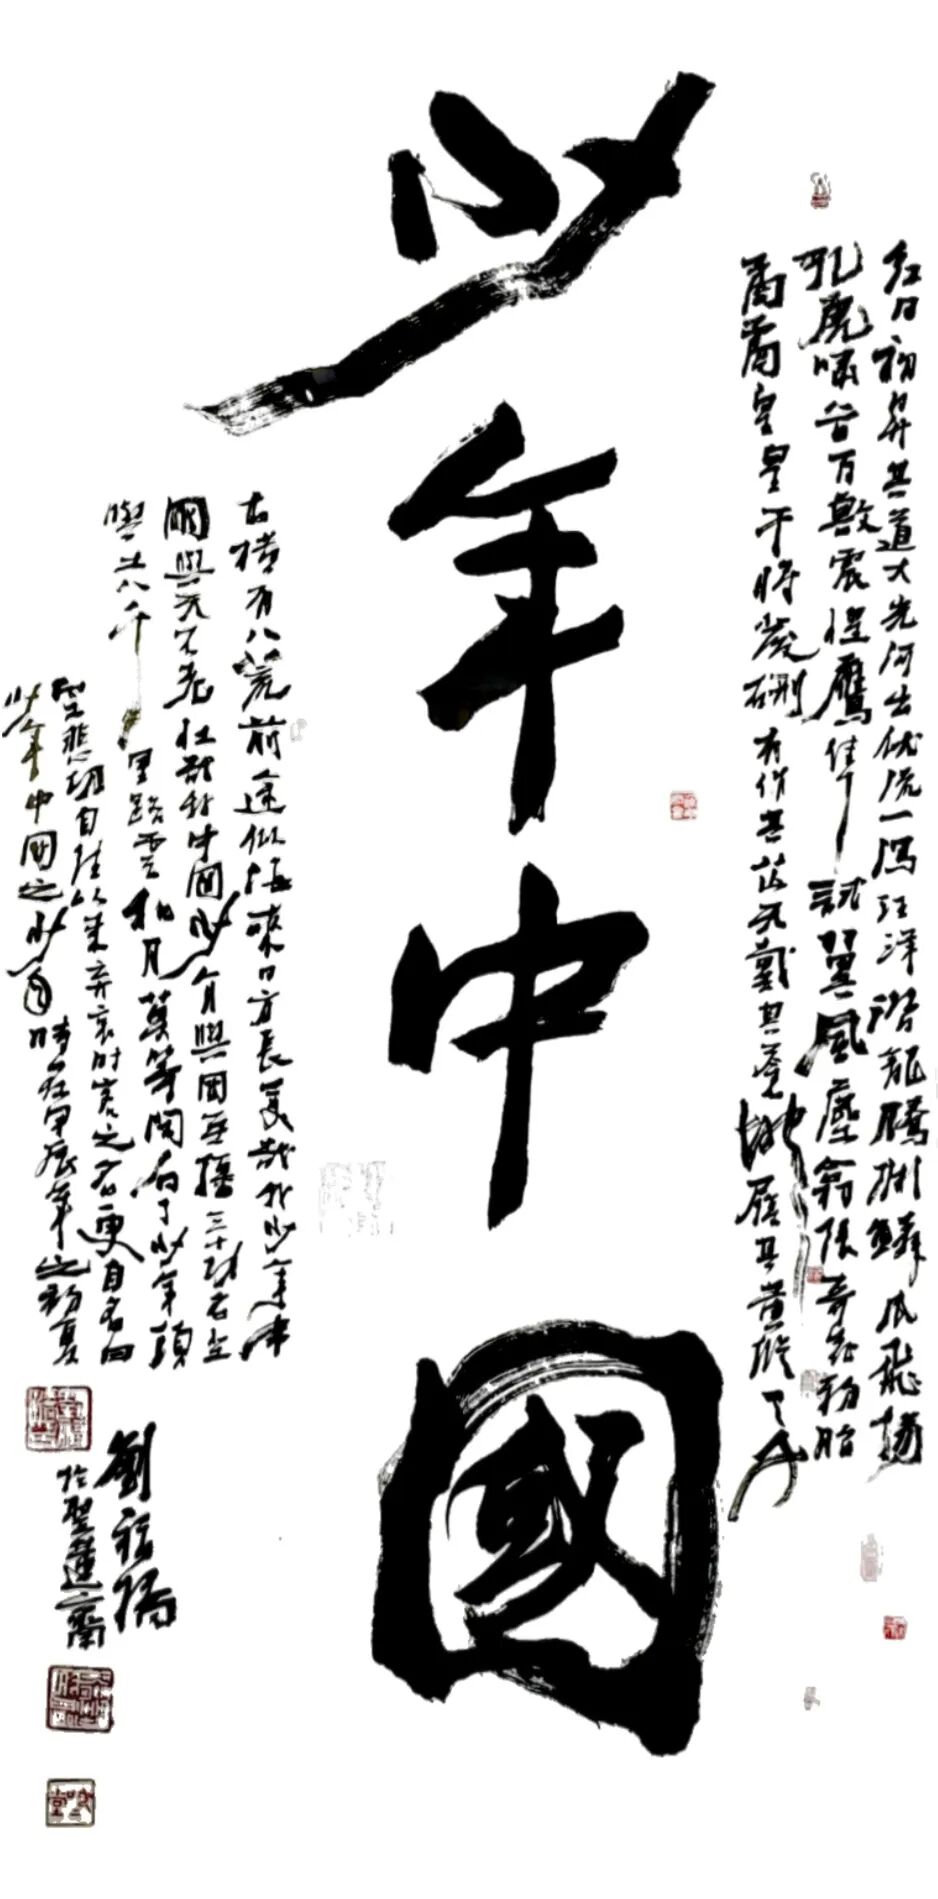 红日初昇其道大光河出伏流一泻汪洋潜龍騰渊鳞爪飛揚
乳虎啸谷百獸震惶鷹隼試翼風塵翕張奇花初胎
矞矞皇皇干將發硎有作其芒天戴其蒼地履其黄縱
少年中國
古橫有八荒前途似海來日方長美哉我少年中
國與天不老壯哉我中國少年與國無疆三十功名尘
與土八千里路雲和月莫等閑白了少年頭
空悲切自今以來弃哀时客之名更自名曰
少年中國之少年時在甲辰年之初夏
劉
於聖蓮齋